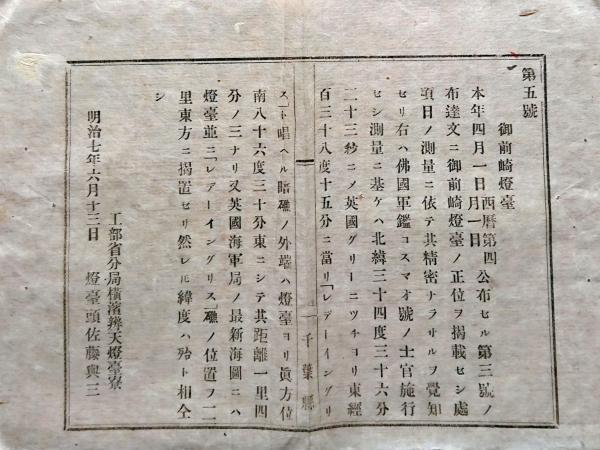 第五號
御前崎燈臺
本年四月一日西暦第四月一日公布セル第三號ノ
布達文ニ御前崎燈臺ノ正位ヲ揭載セシ處
項日ノ測量ニ依テ其精密ナラサルヲ覺知
セリ右ハ佛國軍鑑コスマオ號ノ士官施行
セシ測量ニ基ケハ北緯三十四度三十六分
二十三秒ニノ英國グリーニツチヨリ東經
百三十八度十五分ニ當リ「レデーイングリ
千葉縣
ス」ト唱ヘル暗礁ノ外端ハ燈臺ヨリ眞方位
南八十六度三十分東ニシテ其距離一里四
分ノ三ナリ又英國海軍局ノ最新海圖ニハ
燈臺並ニ「レデーイングリス礁ノ位置ヲ一二
里東方ニ揭置セリ然レ𪜈緯度ハ殆ト相仝
シ
工部省分局橫濱辨天燈臺寮
明治七年六月十三日 燈臺頭佐藤與三